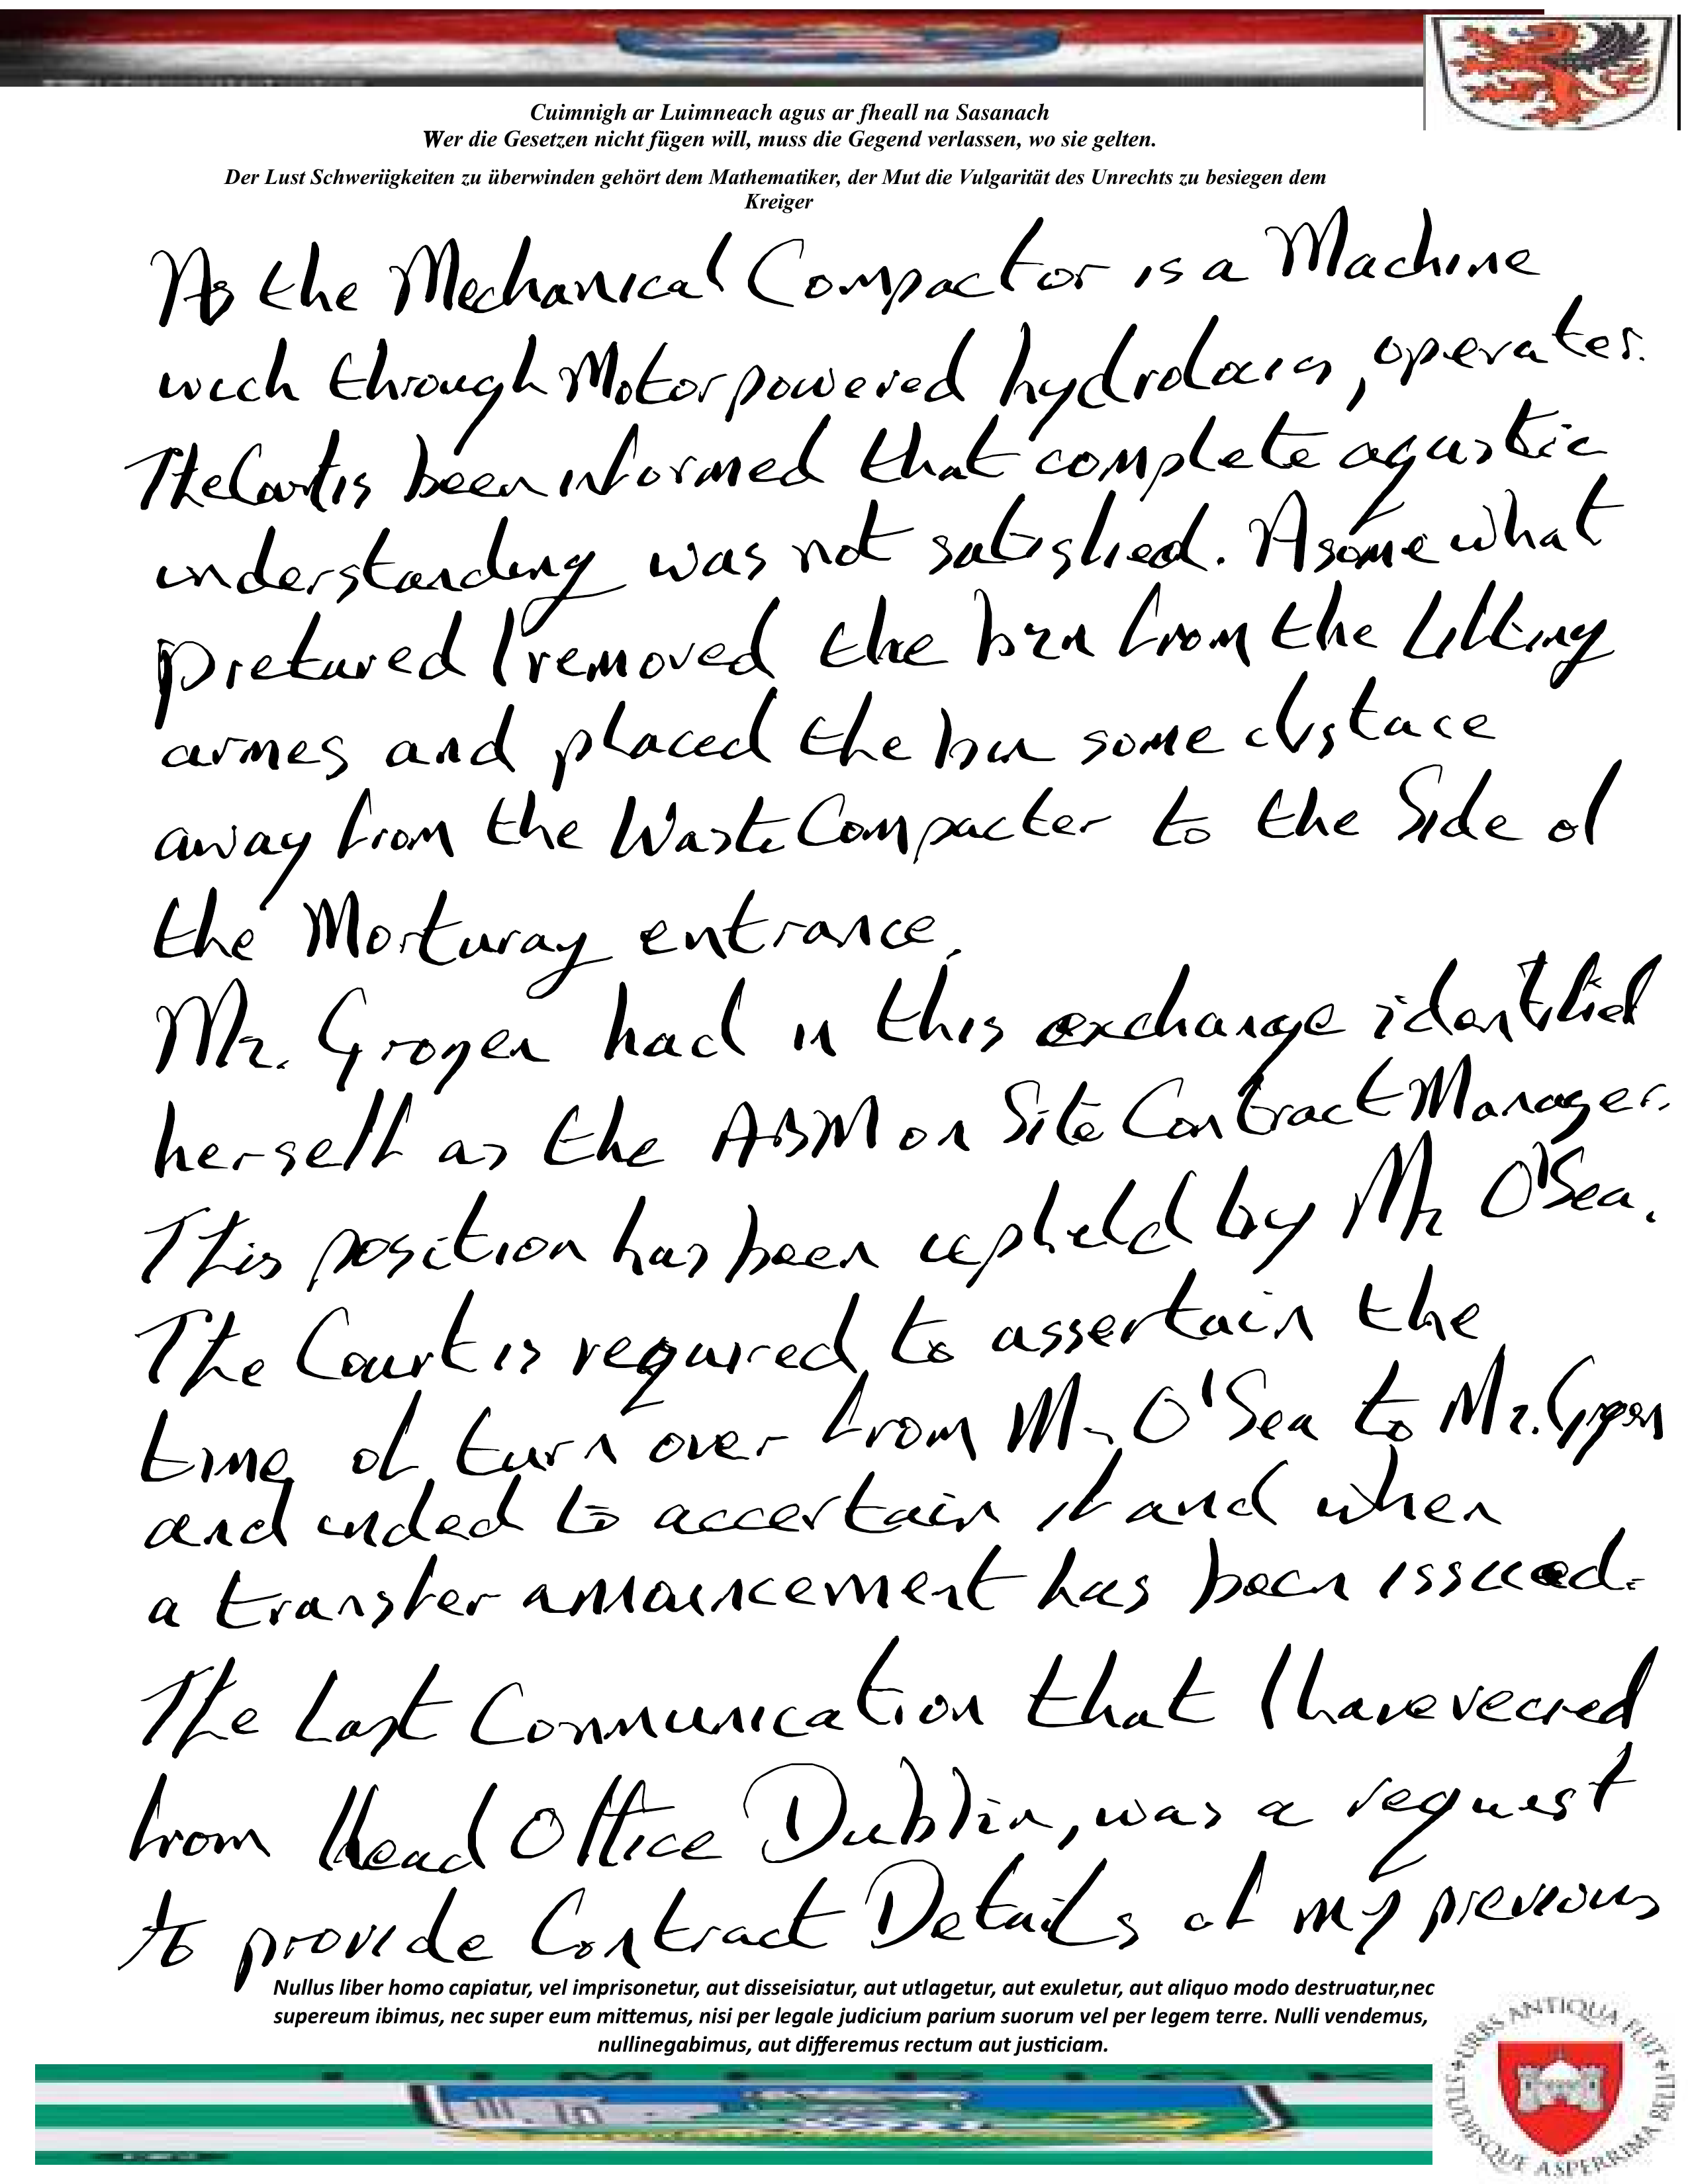 Cuimnigh ar Luimneach agus ar fheall na Sasanach
Wer die Gesetzen nicht fügen will, muss die Gegend verlassen, wo sie gelten.
Der Lust Schweriigkeiten zu überwinden gehört dem Mathematiker, der Mut die Vulgarität des Unrechts zu besiegen dem
Kreiger
As the Mechanical Compactor is a Machine
wich through Motor powered, operates.
The Court is been informed that complete agustic
understanding was not satisfied. A some what
I removed the bin from the lifting
armes and placed the bin some distace
away from the Waste Compacter to the Side of
the Morturay entrance.
Mr. Grogen had in this exchange identified
herself as the ABM on Site Contract Manager.
This position has been upheld by Mr O'Sea.
The Court is required to assertain the
time of turn over from Mr O'Sea to Mr. Grogen
and inded to accertain if and when
a transfer announcement has been issued.
The Last Communication that I have recived
from Head Office Dublin, was a request
to provide Contract Details of my previous
Nullus liber homo capiatur, vel imprisonetur, aut disseisiatur, aut utlagetur, aut exuletur, aut aliquo modo destruatur,nec
supereum ibimus, nec super eum mittemus, nisi per legale judicium parium suorum vel per legem terre. Nulli vendemus,
nullinegabimus, aut differemus rectum aut justiciam.
URBS ANTIQUA FUIT STUDIISQUE ASPERRIMA BELLI